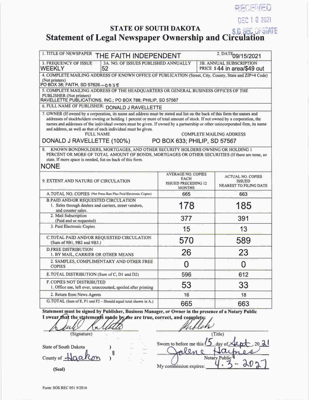 RECEIVED
DEC 10 2021
S.D. SEC. OF STATE
STATE OF SOUTH DAKOTA
Statement of Legal Newspaper Ownership and Circulation
1. TITLE OF NEWSPAPER THE FAITH INDEPENDENT 2. DATE 09/15/2021
3. FREQUENCY OF ISSUE WEEKLY 3A. NO. OF ISSUES PUBLISHED ANNUALLY 52 3B. ANNUAL SUBSCRIPTION PRICE $ 44 in area/$49 out
4. COMPLETE MAILING ADDRESS OF KNOWN OFFICE OF PUBLICATION (Street, City, County, State and ZIP+4 Code)
(Not printers)
PO BOX 38; FAITH, SD 57626-0038
5. COMPLETE MAILING ADDRESS OF THE HEADQUARTERS OR GENERAL BUSINESS OFFICES OF THE
PUBLISHER (Not printer)
RAVELLETTE PUBLICATIONS, INC.; PO BOX 788; PHILIP, SD 57567
6. FULL NAME OF PUBLISHER: DONALD J RAVELLETTE
7. OWNER (If owned by a corporation, its name and address must be stated and list on the back of this form the names and
addresses of shareholders owning or holding 1 percent or more of total amount of stock. If not owned by a corporation, the
names and addresses of the individual owners must be given. If owned by a partnership or other unincorporated firm, its name
and address, as well as that of each individual must be given.
FULL NAME COMPLETE MAILING ADDRESS
DONALD J RAVELLETTE (100%) PO BOX 633; PHILIP, SD 57567
8. KNOWN BONDHOLDERS, MORTGAGES, AND OTHER SECURITY HOLDERS OWNING OR HOLDING 1
PERCENT OR MORE OF TOTAL AMOUNT OF BONDS, MORTGAGES OR OTHER SECURITIES (If there are none, so
state. If more space is needed, list on back of this form.
NONE
9. EXTENT AND NATURE OF CIRCULATION AVERAGE NO. COPIES EACH ISSUED PRECEDING 12 MONTHS ACTUAL NO. COPIES ISSUED NEAREST TO FILING DATE
A. TOTAL NO. COPIES 665 663
B. PAID AND/OR REQUESTED CIRCULATION
1. Sales through dealers and carriers, street vendors, and counter sales. 178 185
2. Mail Subscription (Paid and or requested) 377 391
3. Paid Electronic Copies 15 13
C. TOTAL PAID AND/OR REQUESTED CIRCULATION (Sum of 9B1, 9B2 and 9B3.) 570 589
D. FREE DISTRIBUTION
1. BY MAIL, CARRIER OR OTHER MEANS 26 23
2. SAMPLES, COMPLIMENTARY AND OTHER FREE COPIES 0 0
E. TOTAL DISTRIBUTION (Sum of C, D1 and D2) 596 612
F. COPIES NOT DISTRIBUTED
1. Office use, left over, unaccounted, spoiled after printing 53 33
2. Return from News Agents 16 18
G. TOTAL (Sum of E, F1 and F2 - Should equal total shown in A.) 665 663
Statement must be signed by Publisher, Business Manager, or Owner in the presence of a Notary Public
I swear that the statements made by me are true, correct, and complete:
(Signature) (Title)
State of South Dakota )
County of Haakon )
(Seal)
Sworn to before me this 15 day of Sept, 2021
Jalene Haynes
Notary Public
My commission expires: 4-3-2027
Form: SOS REC 051 9/2016